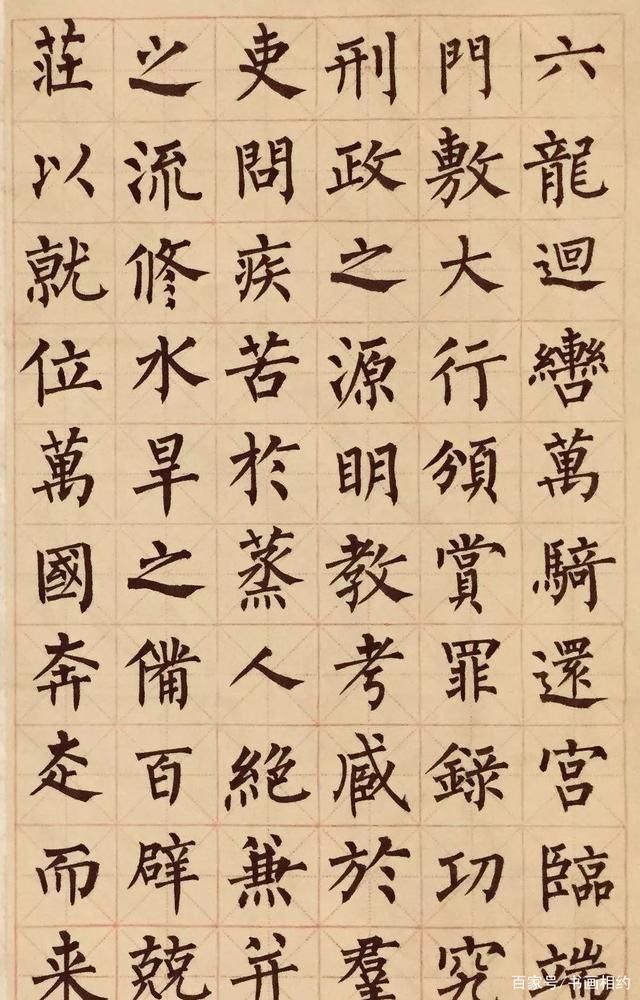 六龍迴轡萬騎還宮臨端
門敷大行頒賞罪錄功究
刑政之源明教考臧於羣
吏問疾苦於蒸人絕兼并
之流修水旱之備百辟兢
莊以就位萬國奔走而来
百家号/书画相约